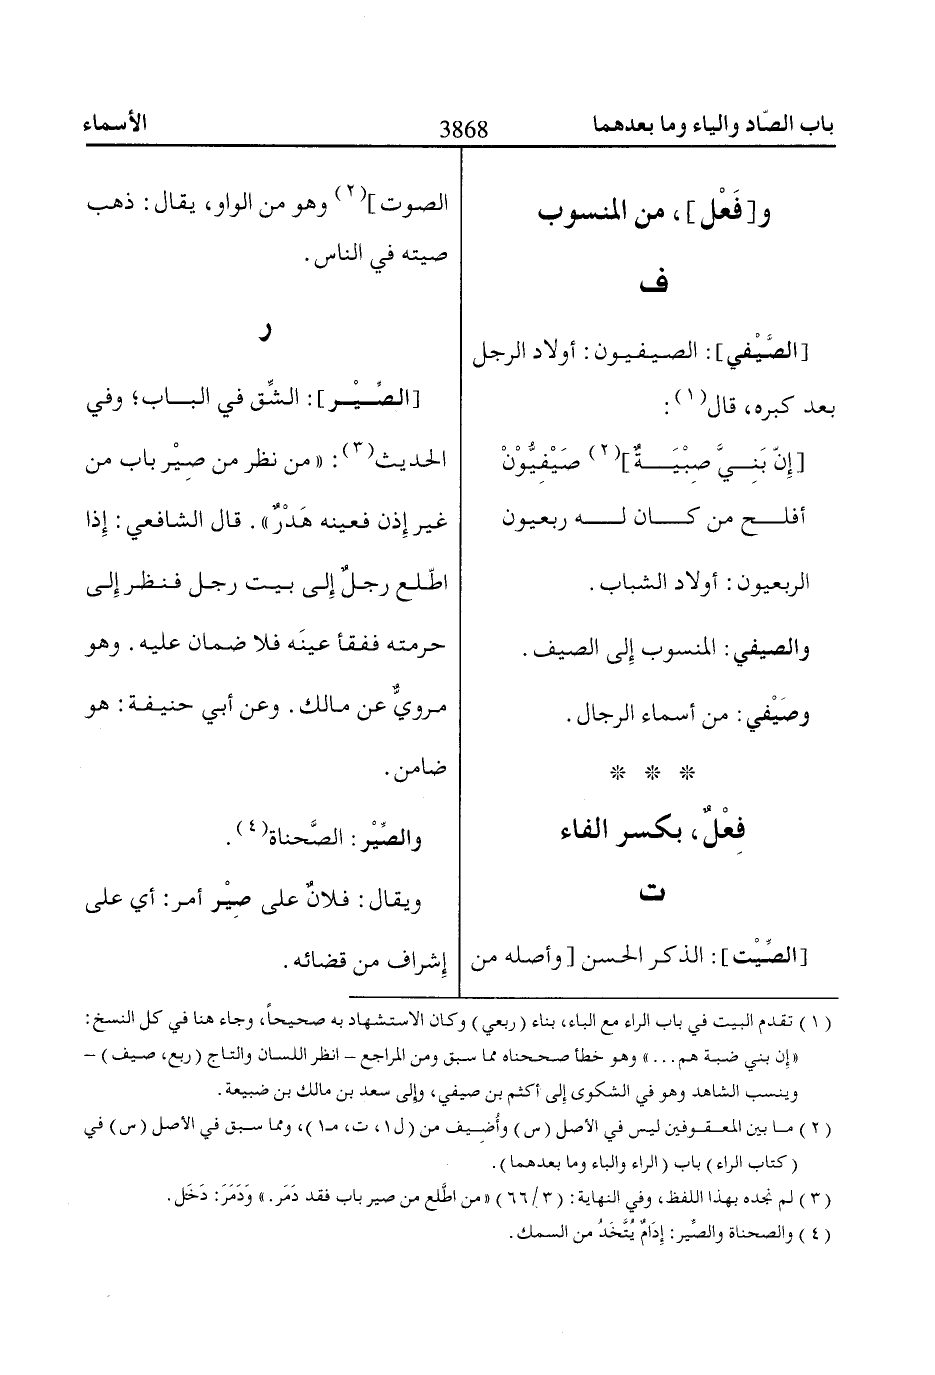 باب الصّاد والياء وما بعدهما
3868
الأسماء
و[فَعْل]، من المنسوب
ف
[الصَّيْفي]: الصيفيون: أولاد الرجل
بعد كبره، قال(١):
[إنّ بَنِيَّ صِبْيَةٌ](٢) صَيْفِيُّوْنْ
أفلح من كان له ربعيون
الربعيون: أولاد الشباب.
والصيفي: المنسوب إلى الصيف.
وصَيْفي: من أسماء الرجال.
* * *
فِعْلٌ، بكسر الفاء
ت
[الصِّيْت]: الذكر الحسن [وأصله من
الصوت](٢) وهو من الواو، يقال: ذهب
صيته في الناس.
ر
[الصِّيْر]: الشّق في الباب؛ وفي
الحديث(٣): «من نظر من صِيْر باب من
غير إذن فعينه هَدْرٌ». قال الشافعي: إذا
اطّلع رجلٌ إلى بيت رجل فنظر إلى
حرمته ففقأ عينَه فلا ضمان عليه. وهو
مرويٌّ عن مالك. وعن أبي حنيفة: هو
ضامن.
والصِّيْر: الصَّحناة(٤).
ويقال: فلانٌ على صِيْر أمر: أي على
إشراف من قضائه.
(١) تقدم البيت في باب الراء مع الباء، بناء (ربعي) وكان الاستشهاد به صحيحاً، وجاء هنا في كل النسخ:
«إن بني ضبة هم...» وهو خطأ صححناه مما سبق ومن المراجع – انظر اللسان والتاج (ربع، صيف) –
وينسب الشاهد وهو في الشكوى إلى أكثم بن صيفي، وإلى سعد بن مالك بن ضبيعة.
(٢) ما بين المعقوفين ليس في الأصل (س) وأُضيف من (ل١، ت، م١)، ومما سبق في الأصل (س) في
(كتاب الراء) باب (الراء والباء وما بعدهما).
(٣) لم نجده بهذا اللفظ، وفي النهاية: (٦٦/٣) «من اطَّلع من صير باب فقد دَمَر.» وَدَمَرَ: دَخَل.
(٤) والصحناة والصِّير: إِدَامٌ يُتَّخَذُ من السمك.